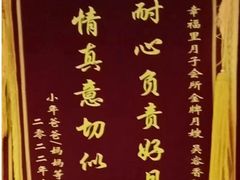 幸福里月子会所金牌月嫂 吴容香
耐心负责好月
情真意切似
小年爸爸/妈妈等
二零二二年